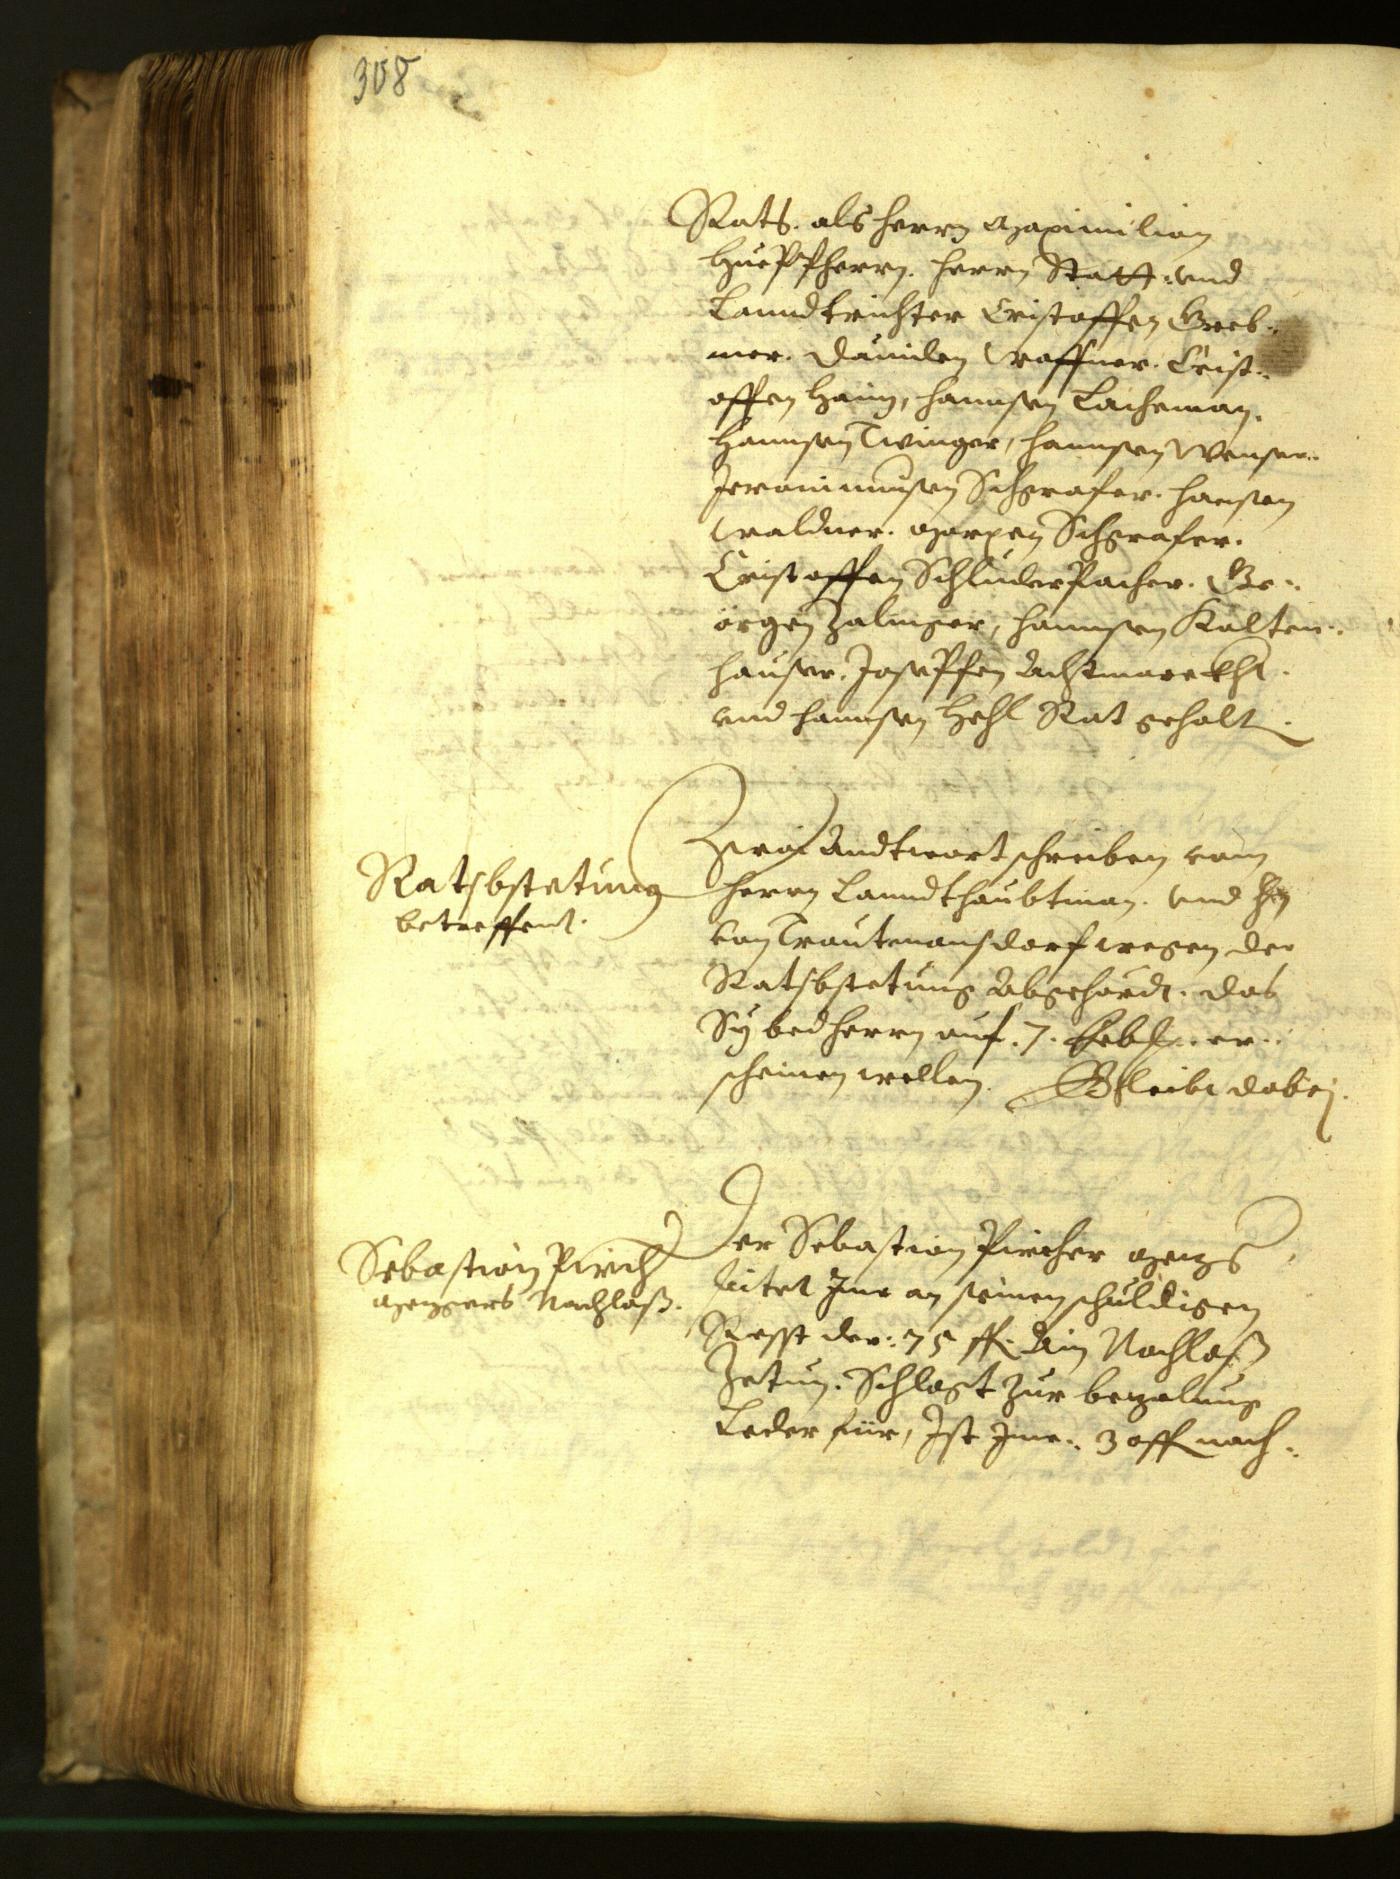 308
Rats. als herrn Maximilian
Hueppherrn. herrn Statt: und
Lanndtrichter Cristoffen Greb:
mer. Daniilen Waffner. Crist:
offen Haim, hannsen Lacheman.
Hannsen Twinger, hannsen Wenser.
Jeronimusen Schgrafer. hansen
Waldner. Marxen Schgrafer.
Cristoffen Schluderpacher. Ge:
örgen Zalinger, hannsen Kalten:
hauser. Joseffen Achtmarckht.
und hannsen Hehl Rat gehalt.
Ratsbstetung
betreffent.
Zwai Andtwortschreiben vom
herrn Lanndthaubtman. und hn
von Trautmansdorf wegen der
Ratsbstetung Abgehördt. das
Sy bed herrn auf. 7. Feb. er:
scheinen wellen. Bleibt dabej.
Sebastian Pirch
Mezgers Nachlaß.
Der Sebastian Pircher Mezg
bitet Ime an seinen schuldigen
Resst der: 75 fl. Ain Nachlaß
Zetun. Schlagt zur bezalung
Leder für, Ist Ime. 30 fl nach: